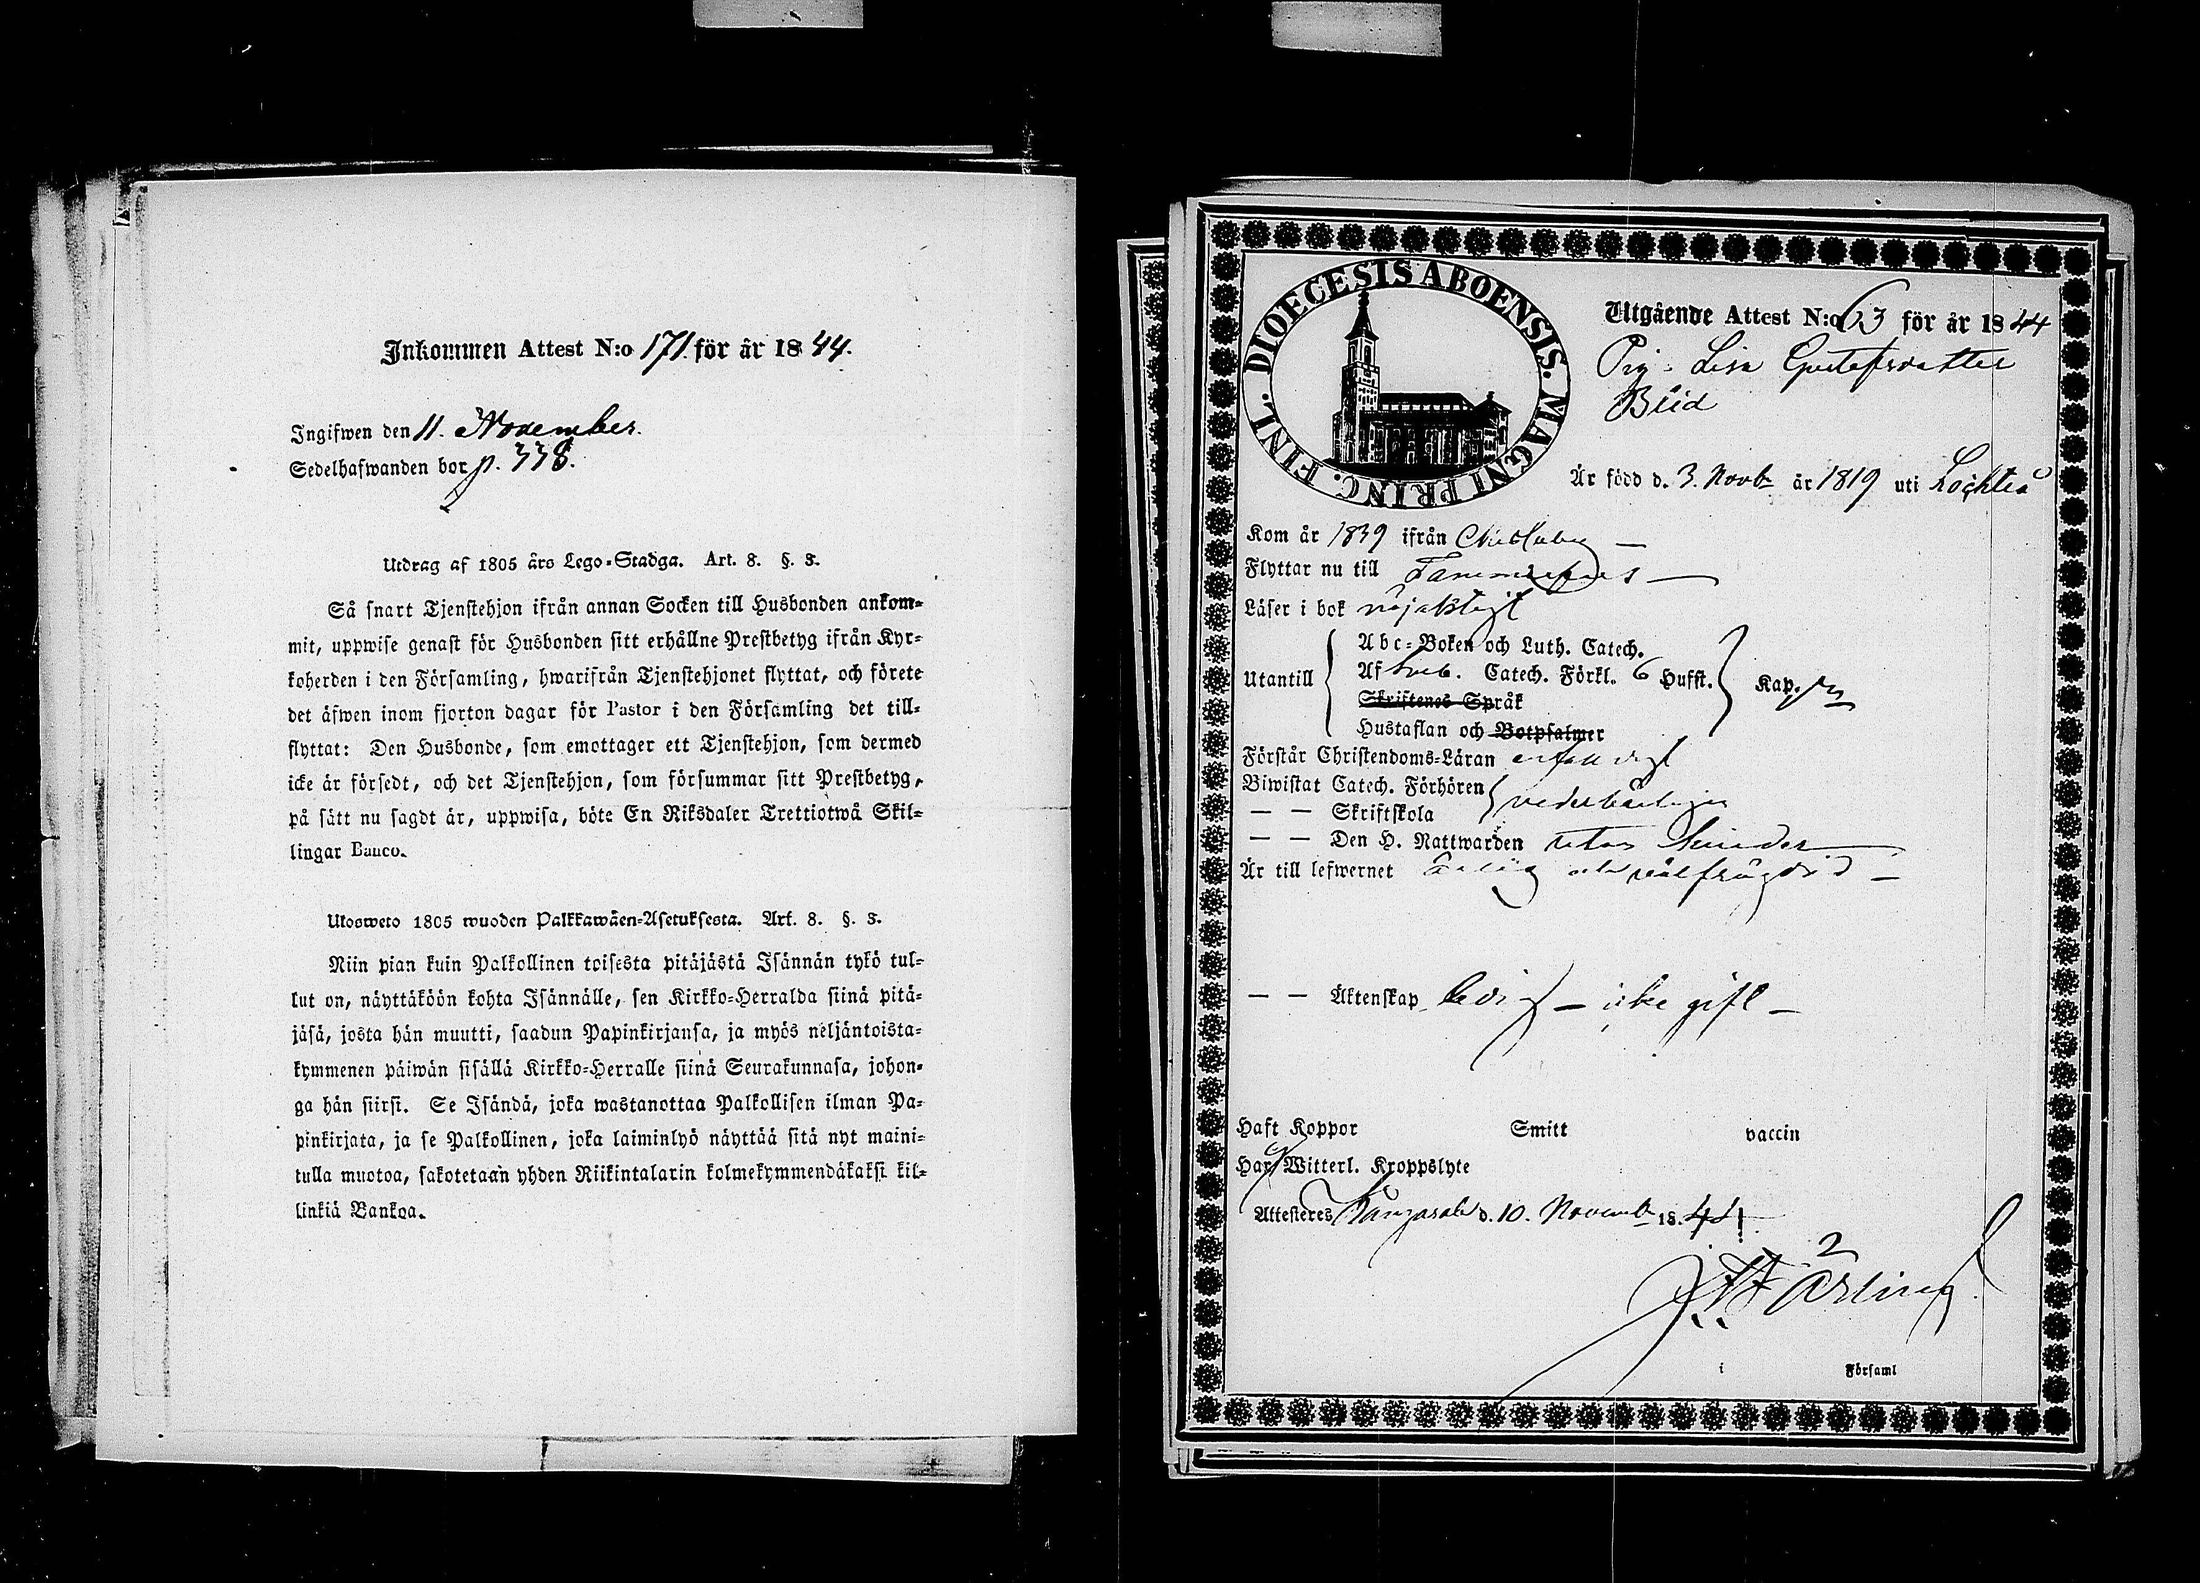 Inkommen Attest N:o 171 för år 1844.
Ingifwen den 11. November.
Sedelhafwanden bor p. 338.
Utdrag af 1805 års Lego-Stadga. Art. 8. §. 3.
Så snart Tjenstehjon ifrån annan Socken till Husbonden ankom-
mit, uppwise genast för Husbonden sitt erhållne Prestbetyg ifrån Kyr-
koherden i den Församling, hwarifrån Tjenstehjonet flyttat, och förete
det äfwen inom fjorton dagar för Pastor i den Församling det till-
flyttat: Den Husbonde, som emottager ett Tjenstehjon, som dermed
icke är försedt, och det Tjenstehjon, som försummar sitt Prestbetyg,
på sätt nu sagdt är, uppwisa, böte En Riksdaler Trettiotwå Skil-
lingar Banco.
Ulosweto 1805 wuoden Palkkawäen-Asetuksesta. Art. 8. §. 3.
Niin pian kuin Palkollinen toisesta pitäjästä Isännän tykö tul-
lut on, näyttäköön kohta Isännälle, sen Kirkko-Herralda siinä pitä-
jäsä, josta hän muutti, saadun Papinkirjansa, ja myös neljäntoista-
kymmenen päiwän sisällä Kirkko-Herralle siinä Seurakunnasa, johon-
ga hän siirsi. Se Isändä, joka wastanottaa Palkollisen ilman Pa-
pinkirjata, ja se Palkollinen, joka laiminlyö näyttää sitä nyt maini-
tulla muotoa, sakotetaan yhden Riikintalarin kolmekymmendäkaksi kil-
linkiä Bankoa.
DIOECESIS ABOENSIS. MAGNI PRINC. FINL.
Utgående Attest N:o 63 för år 1844
Pig. Lisa Gustafsdotter
Blid
Är född d. 3. Novb. år 1819 uti Lochteå
Kom år 1839 ifrån
Flyttar nu till Tammerfors
Läser i bok nöjaktigt
Utantill
Abc-Boken och Luth. Catech.
Af Sveb. Catech. Förkl. 6 Hufst. Kap.
Skriftenes Språk
Hustaflan och Botpsalmer
Förstår Christendoms-Läran enfaldigt
Biwistat Catech. Förhören vederbörligen
— — Skriftskola
— — Den H. Nattwarden utan hinder
Är till lefwernet ärlig och välfrägdad
— — Äktenskap ledig — icke gift —
Haft Koppor Smitt vaccin
Har Witterl. Kroppslyte
Attesteres Kangasala d. 10. Novemb. 1844
i Församl